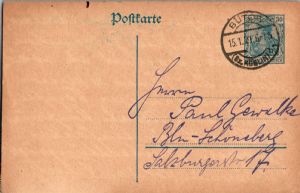 Postkarte
15.1.21.
30 30
Herrn
Paul Gewalke
Bln-Schöneberg
Salzburgerstr 17